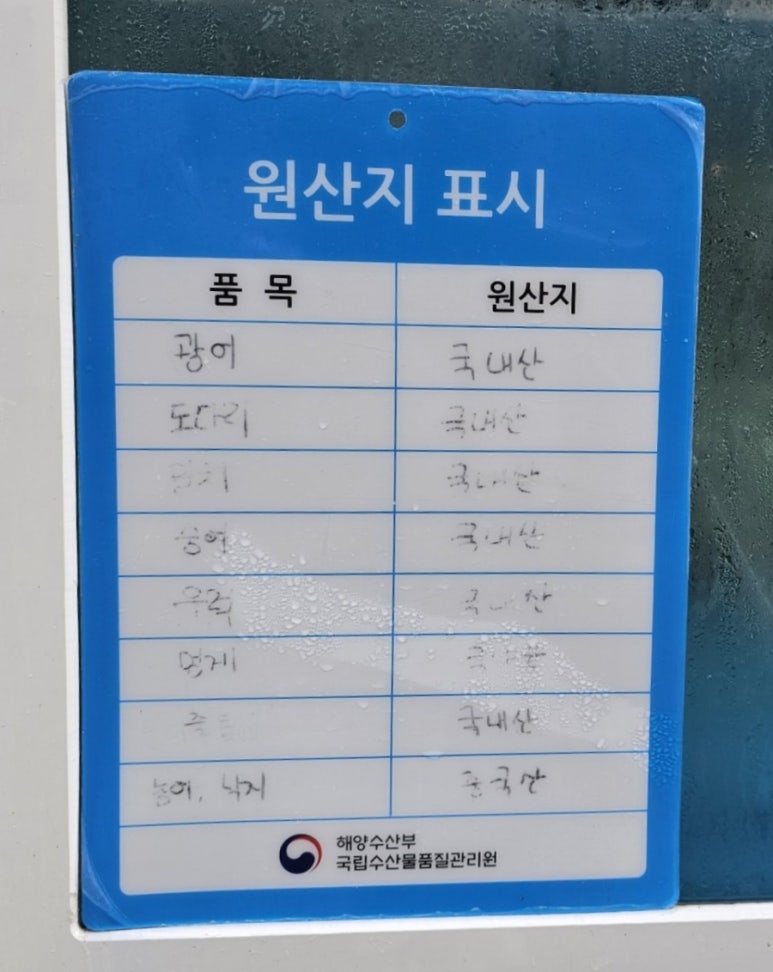 원산지 표시
품 목 원산지
광어 국내산
도다리 국내산
국내산
숭어 국내산
우럭 국내산
멍게
국내산
농어, 낙지 중국산
해양수산부
국립수산물품질관리원